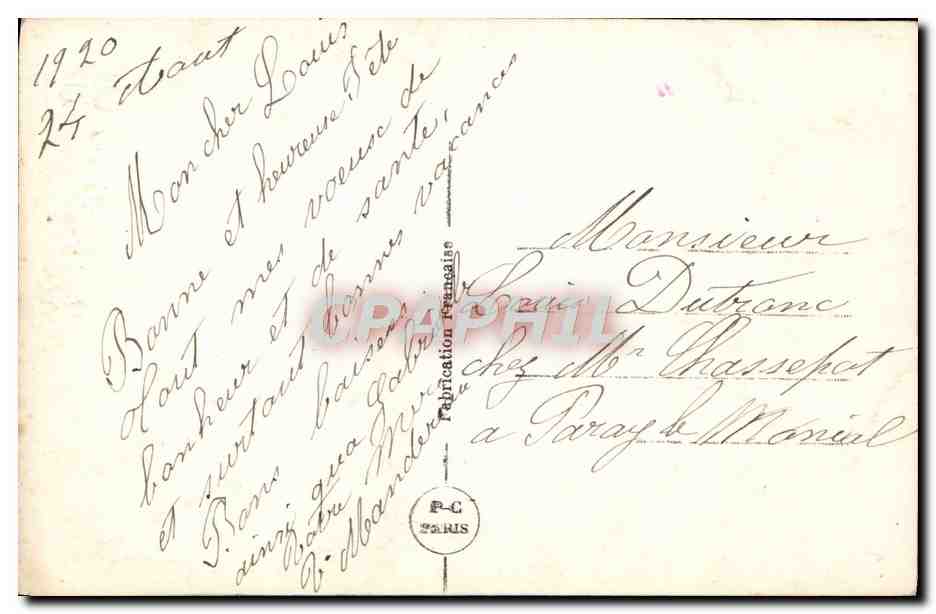 1920
24 Aout
Mon cher Louis
Bonne et heureuse Fête
tout mes voeux de
bonheur et de santé,
et surtout bonnes vacances
Bons baisers
ainsi qua Gabrielle
Votre Mère
Vᵉ Mandere
Fabrication Francaise
P-C
PARIS
Monsieur
Louis Dutranc
chez Mr Chassepot
a Paray le Monial
CPAPHIL